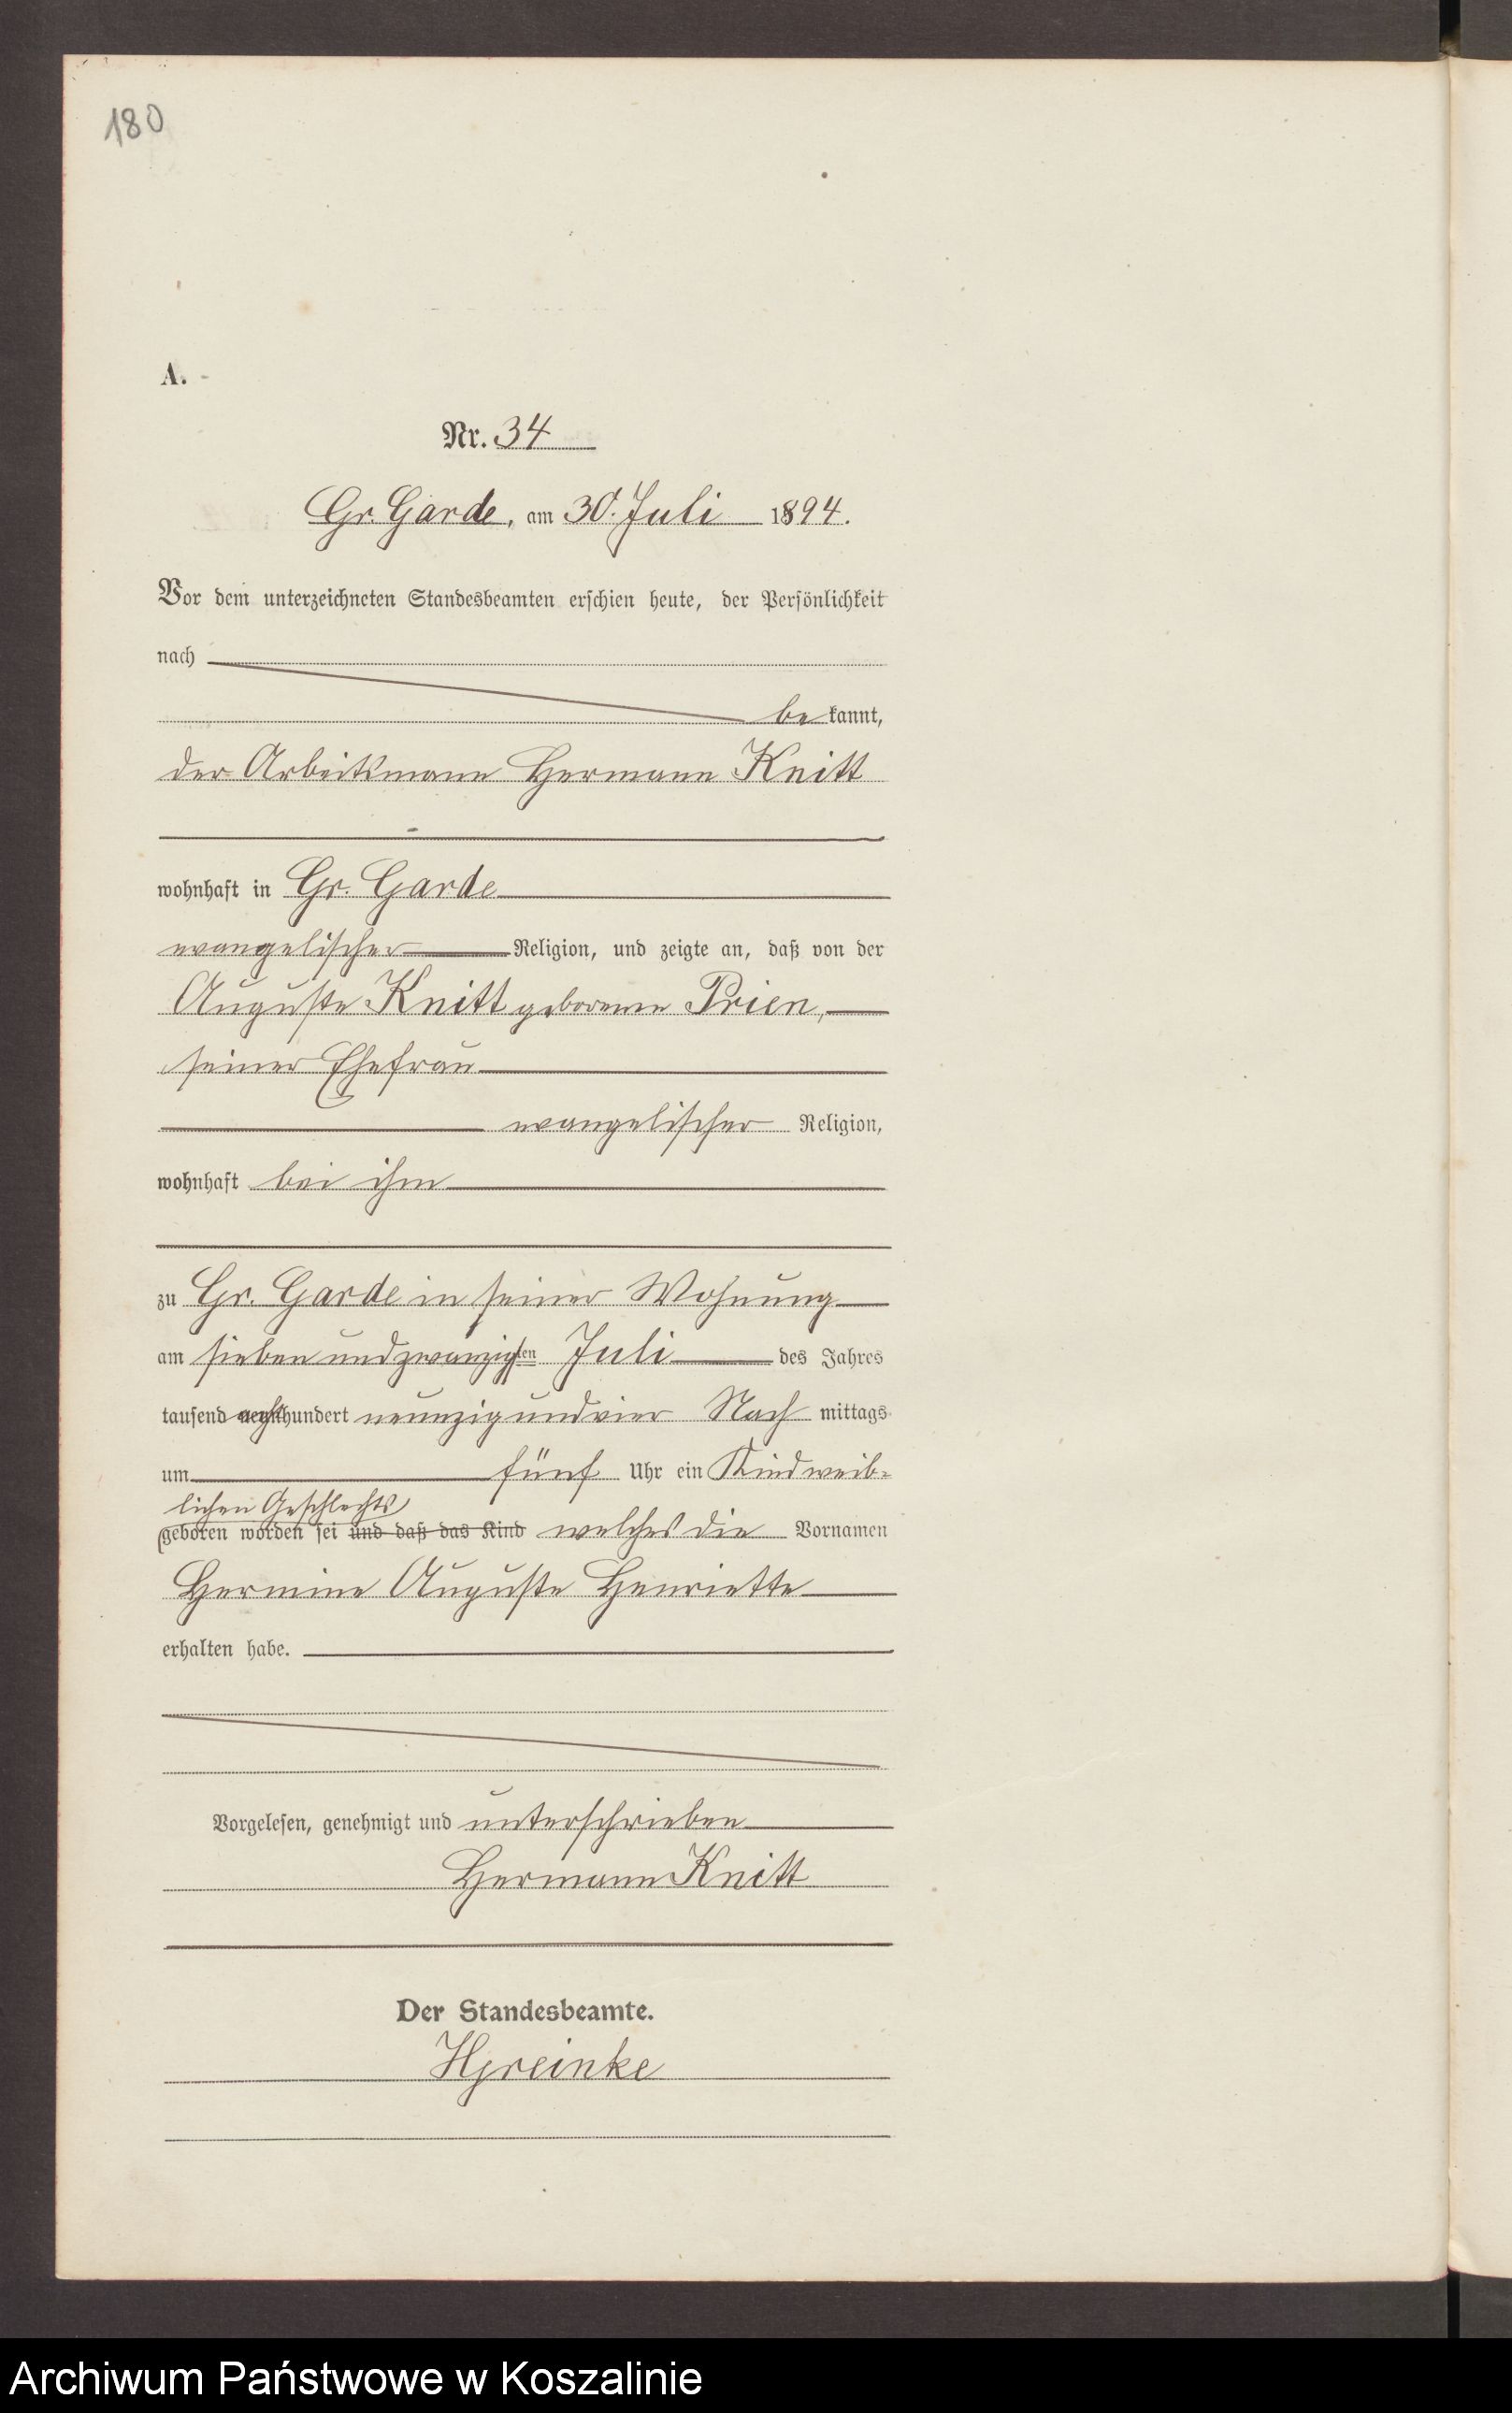 180
A.
Nr. 34
Gr. Garde, am 30. Juli 1894.
Vor dem unterzeichneten Standesbeamten erschien heute, der Persönlichkeit
nach
be kannt,
der Arbeitsmann Hermann Knitt
wohnhaft in Gr. Garde
evangelischer Religion, und zeigte an, daß von der
Auguste Knitt geborenen Prien,
seiner Ehefrau
evangelischer Religion,
wohnhaft bei ihm
zu Gr. Garde in seiner Wohnung
am sieben und zwanzigsten Juli des Jahres
tausend achthundert neunzig und vier Nach mittags
um fünf Uhr ein Kind weib-
lichen Geschlechts
geboren worden sei und daß das Kind welches die Vornamen
Hermine Auguste Henriette
erhalten habe.
Vorgelesen, genehmigt und unterschrieben
Hermann Knitt
Der Standesbeamte.
Archiwum Państwowe w Koszalinie